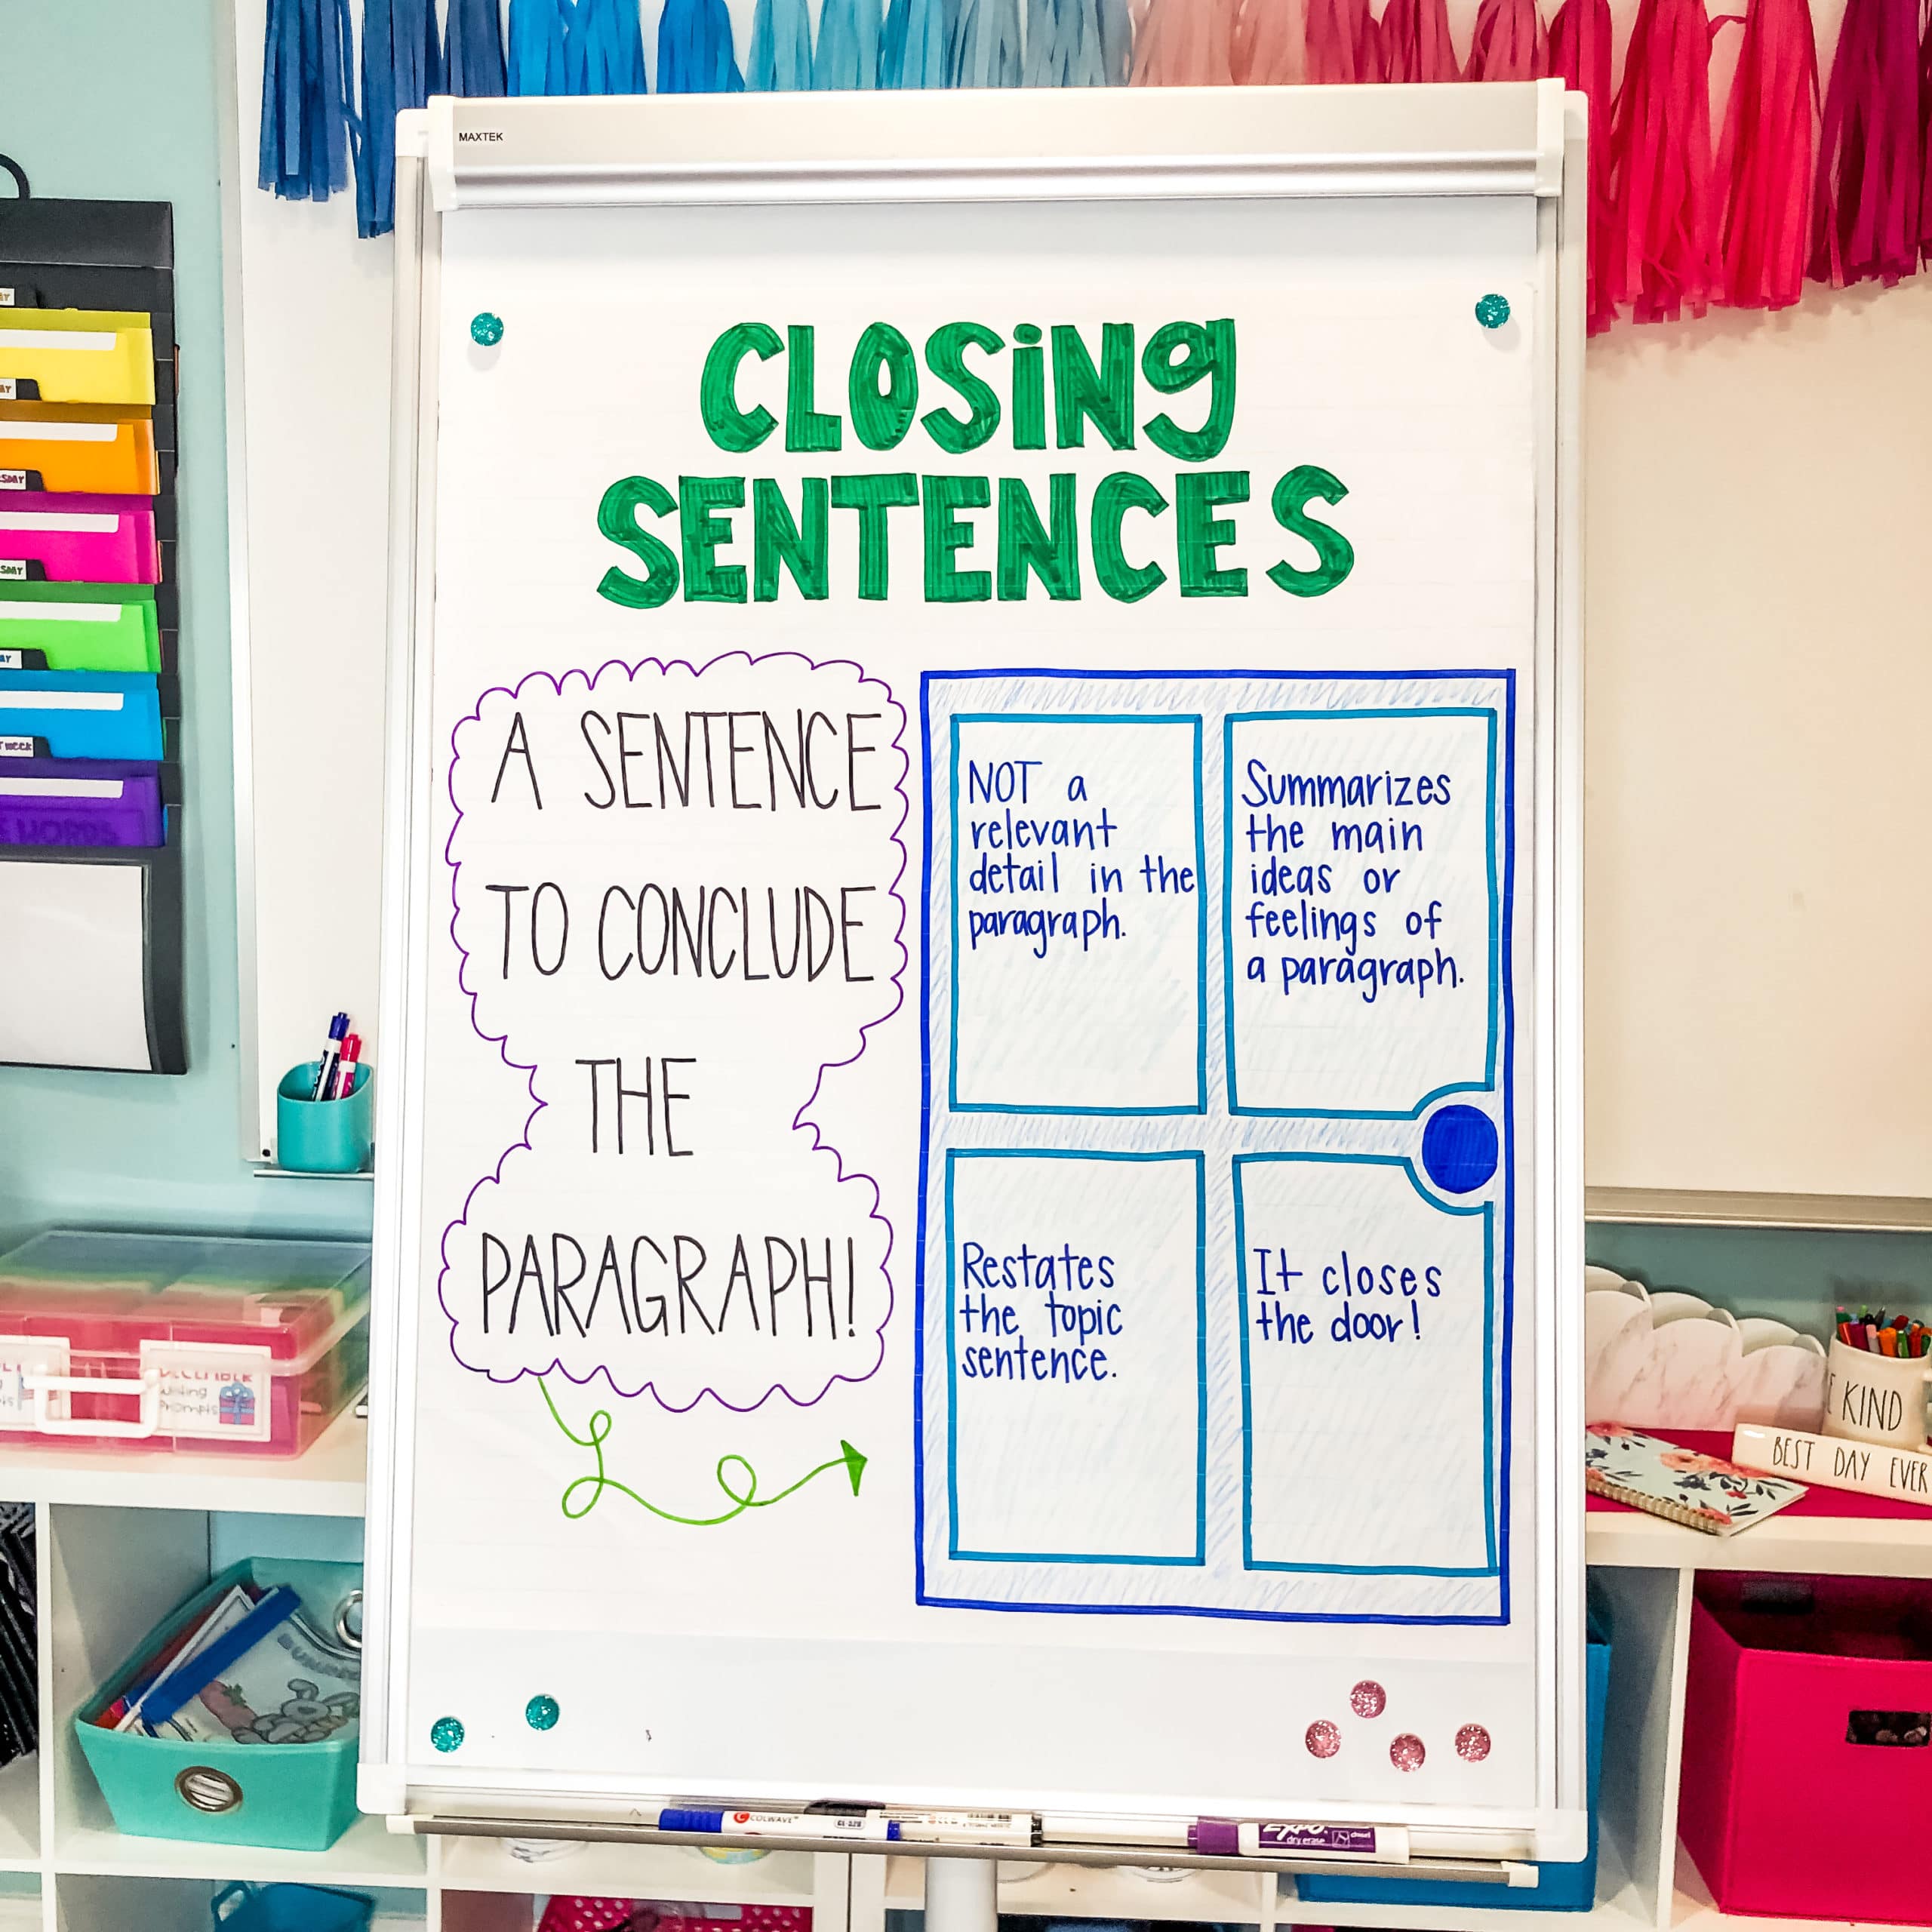 MAXTEK
CLOSING
SENTENCES
A SENTENCE
TO CONCLUDE
THE
PARAGRAPH!
NOT a
relevant
detail in the
paragraph.
Summarizes
the main
ideas or
feelings of
a paragraph.
Restates
the topic
sentence.
It closes
the door!
DECEMBER
Writing
Prompts
KIND
BEST DAY EVER
COLWAVE
EXPO
dry erase